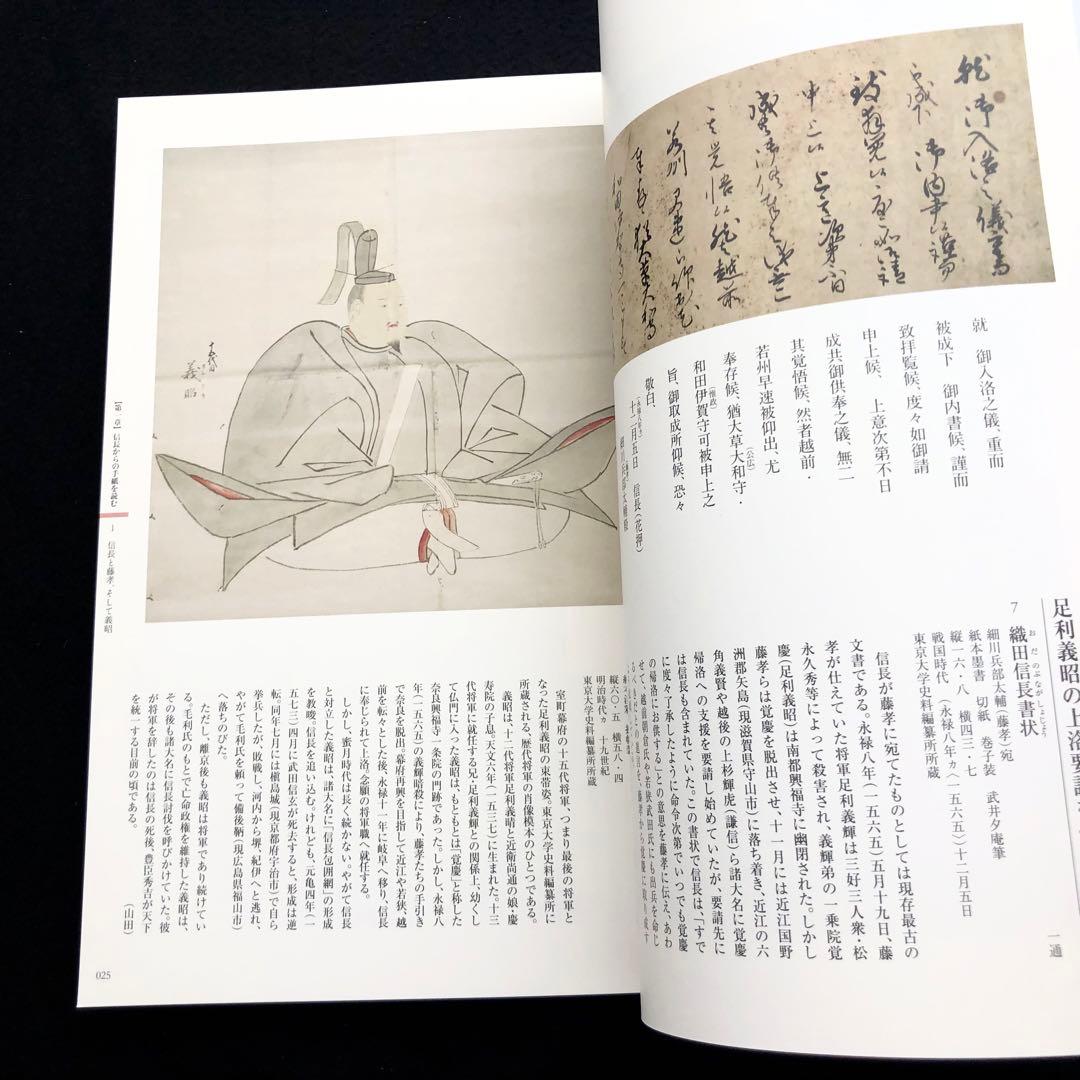 足利義昭の上洛要請
7 織田信長書状
おだのぶながしょじょう
一通
細川兵部太輔(藤孝)宛 武井夕庵筆
紙本墨書 切紙 巻子装
縦一六・八 横四三・七
戦国時代 (永禄八年ヵ〈一五六五〉)十二月五日
東京大学史料編纂所所蔵
信長が藤孝に宛てたものとしては現存最古の
文書である。永禄八年(一五六五)五月十九日、藤
孝が仕えていた将軍足利義輝は三好三人衆・松
永久秀等によって殺害され、義輝弟の一乗院覚
慶(足利義昭)は南都興福寺に幽閉された。しかし
藤孝らは覚慶を脱出させ、十一月には近江国野
洲郡矢島(現滋賀県守山市)に落ち着き、近江の六
角義賢や越後の上杉輝虎(謙信)ら諸大名に覚慶
帰洛への支援を要請し始めていたが、要請先に
は信長も含まれていた。この書状で信長は、「すで
に度々了承したように命令次第でいつでも覚慶
の帰洛にお供する」との意思を藤孝に伝え、あわ
せて、越前朝倉氏や若狭武田氏にも出兵を命じ
就 御入洛之儀、重而
被成下 御内書候、謹而
致拝覧候、度々如御請
申上候、上意次第不日
成共御供奉之儀、無二
其覚悟候、然者越前・
若州早速被仰出、尤
奉存候、猶大草大和守・
(公広)
和田伊賀守可被申上之
(惟政)
旨、御取成所仰候、恐々
敬白、
(永禄八年ヵ)
十二月五日 信長(花押)
細川兵部太輔殿
義昭
明治時代ヵ 十九世紀
縦六〇・五 横五八・四
東京大学史料編纂所所蔵
室町幕府の十五代将軍、つまり最後の将軍と
なった足利義昭の束帯姿。東京大学史料編纂所に
所蔵される、歴代将軍の肖像模本のひとつである。
義昭は、十二代将軍足利義晴と近衛尚通の娘・慶
寿院の子息。天文六年(一五三七)に生まれた。十三
代将軍に就任する兄・足利義輝との関係上、幼くし
て仏門に入った義昭は、もともとは「覚慶」と称した
奈良興福寺一条院の門跡であった。しかし、永禄八
年(一五六五)の義輝暗殺により、藤孝たちの手引き
で奈良を脱出。幕府再興を目指して近江や若狭、越
前を転々とした後、永禄十一年に岐阜へ移り、信長
に奉じられて上洛、念願の将軍職へ就任する。
しかし、蜜月時代は長く続かない。やがて信長
と対立した義昭は、諸大名に「信長包囲網」の形成
を教唆、信長を追い込む。けれども、元亀四年(一
五七三)四月に武田信玄が死去すると、形成は逆
転。同年七月には槇島城(現京都府宇治市)で自ら
挙兵したが、敗戦し、河内から堺、紀伊へと逃れ、
やがて毛利氏を頼って備後鞆(現広島県福山市)
へ落ちのびた。
ただし、離京後も義昭は将軍であり続けてい
る。毛利氏のもとで亡命政権を維持した義昭は、
その後も諸大名に信長討伐を呼びかけていた。彼
が将軍を辞したのは信長の死後、豊臣秀吉が天下
を統一する前の頃である。
(山田)
【第一章】信長からの手紙を読む
1 信長と藤孝、そして義昭
025